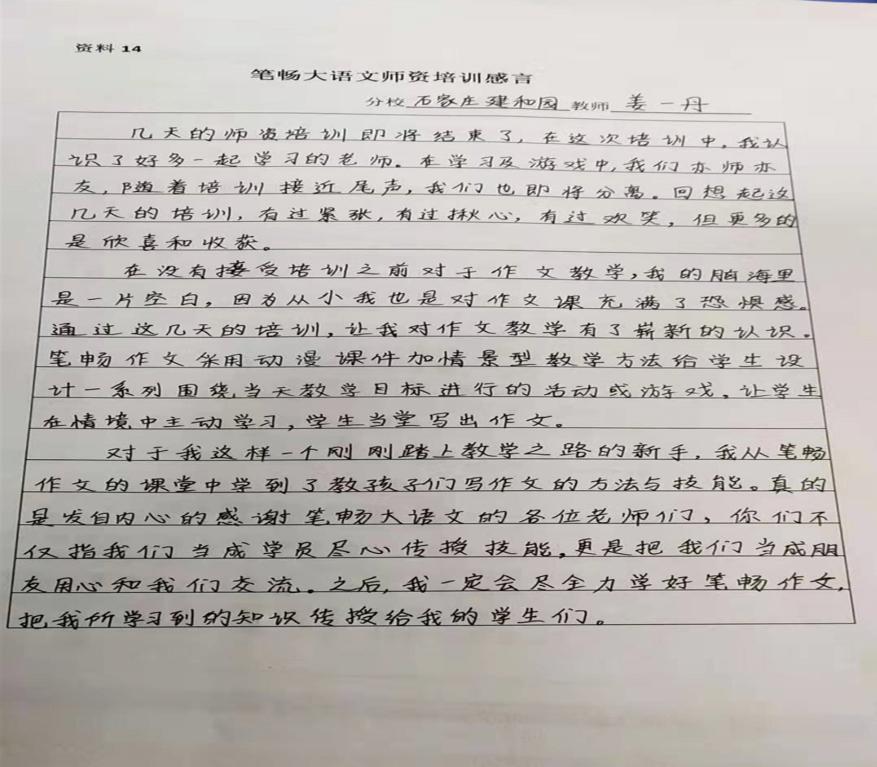 资料 14
笔畅大语文师资培训感言
分校 石家庄建和园 教师 姜一丹
几天的师资培训即将结束了，在这次培训中，我认
识了好多一起学习的老师。在学习及游戏中，我们亦师亦
友，随着培训接近尾声，我们也即将分离。回想起这
几天的培训，有过紧张，有过揪心，有过欢笑，但更多的
是欣喜和收获。
在没有接受培训之前对于作文教学，我的脑海里
是一片空白，因为从小我也是对作文课充满了恐惧感。
通过这几天的培训，让我对作文教学有了崭新的认识。
笔畅作文采用动漫课件加情景型教学方法给学生设
计一系列围绕当天教学目标进行的活动或游戏，让学生
在情境中主动学习，学生当堂写出作文。
对于我这样一个刚刚踏上教学之路的新手，我从笔畅
作文的课堂中学到了教孩子们写作文的方法与技能。真的
是发自内心的感谢笔畅大语文的各位老师们，你们不
仅指我们当成学员尽心传授技能，更是把我们当成朋
友用心和我们交流。之后，我一定会尽全力学好笔畅作文，
把我所学习到的知识传授给我的学生们。